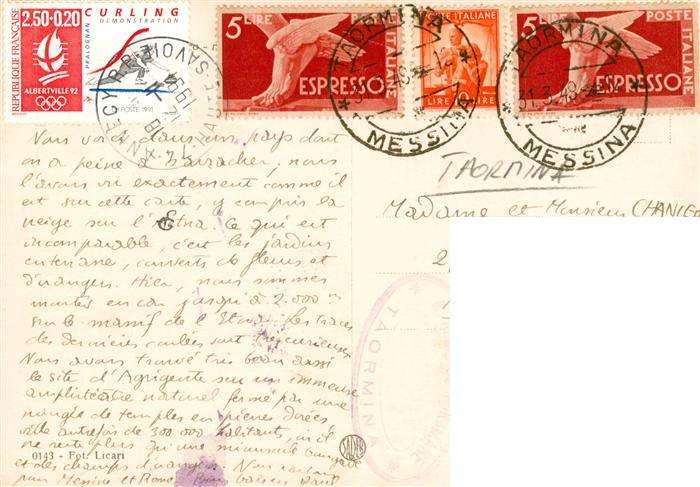 2,50+0,20
CURLING
DEMONSTRATION
PRALOGNAN
REPUBLIQUE FRANÇAISE
ALBERTVILLE 92
LA POSTE 1991
ANNECY R.P.
HAUTE SAVOIE
5 LIRE
POSTE ITALIANE
ESPRESSO
POSTE ITALIANE
LIRE 10 LIRE
5 LIRE
POSTE ITALIANE
ESPRESSO
TAORMINA
MESSINA
TAORMINA
31.3.48
MESSINA
TAORMINA
Madame et Monsieur CHANIER
Nous voici dans un pays dont
on a peine à s'arracher, nous
l'avons vu exactement comme il
est sur cette carte, y compris la
neige sur l'Etna. Ce qui est
incomparable, c'est les jardins
en terrasse, couverts de fleurs et
d'oranges. Hier, nous sommes
montés en car jusqu'à 2.000 m
sur le massif de l'Etna. Les traces
des dernières coulées sont très curieuses
Nous avons trouvé très beau aussi
le site d'Agrigente sur un immense
amphithéâtre naturel fermé par une
rangée de temples en pierres dorées
ville autrefois de 300 000 habitants, où il
ne reste plus qu'une minuscule bourgade
et des champs d'orangers. Nous rentrons
par Messine et Rome. Bons baisers
0143 - Fot. Licari
TAORMINA